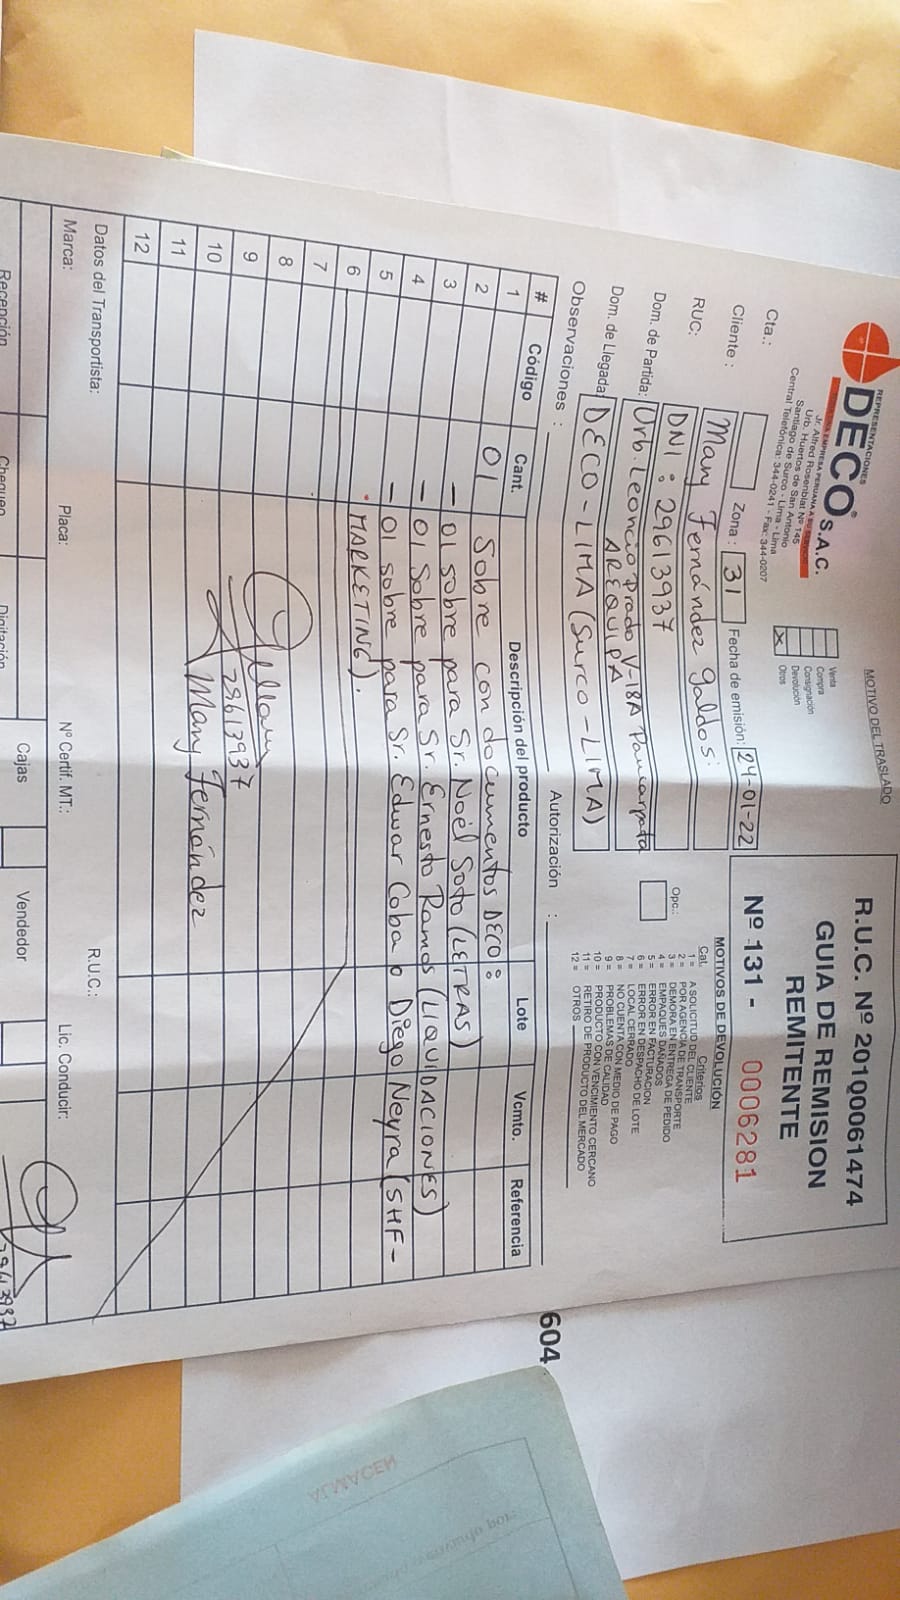 REPRESENTACIONES
DECO® S.A.C.
PRIMERA EMPRESA PERUANA A SU SERVICIO
Jr. Alfred Rosenblat Nº 145
Urb. Huertos de San Antonio
Santiago de Surco - Lima - Lima
Central Telefónica: 344-0241 - Fax: 344-0207
MOTIVO DEL TRASLADO
Venta
Compra
Consignación
Devolución
X Otros
R.U.C. Nº 20100061474
GUIA DE REMISION
REMITENTE
Nº 131 - 0006281
Cta.: Zona : 31 Fecha de emisión: 24-01-22
Cliente : Mary Fernández Galdos.
RUC: DNI : 29613937
Dom. de Partida: Urb. Leoncio Prado V-18A Paucarpata
AREQUIPA
Dom. de Llegada: DECO - LIMA (Surco - LIMA)
Observaciones : Autorización :
Opc.:
MOTIVOS DE DEVOLUCIÓN
Cat. Criterios
1 = A SOLICITUD DEL CLIENTE
2 = POR AGENCIA DE TRANSPORTE
3 = DEMORA EN ENTREGA DE PEDIDO
4 = EMPAQUES DAÑADOS
5 = ERROR EN FACTURACION
6 = ERROR EN DESPACHO DE LOTE
7 = LOCAL CERRADO
8 = NO CUENTA CON MEDIO DE PAGO
9 = PROBLEMAS DE CALIDAD
10 = PRODUCTO CON VENCIMIENTO CERCANO
11 = RETIRO DE PRODUCTO DEL MERCADO
12 = OTROS
# Código Cant. Descripción del producto Lote Vcmto. Referencia
1 01 Sobre con documentos DECO :
2 - 01 sobre para Sr. Noel Soto (LETRAS)
3 - 01 Sobre para Sr. Ernesto Ramos (LIQUIDACIONES)
4 - 01 sobre para Sr. Edwar Coba o Diego Neyra (SHF -
5 • MARKETING).
6
7
8
9 29613937
10 Mary Fernández
11
12
Datos del Transportista: R.U.C.:
Marca: Placa: Nº Certif. MT.: Lic. Conducir:
29613937
Recepción Chequeo Digitación Cajas Vendedor
604
ALMACEN